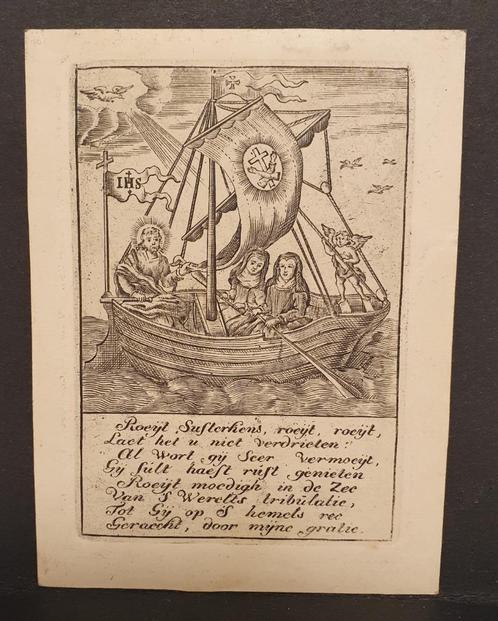 IHS
Roeijt Susterkens, roeijt, roeijt,
Laet het u niet verdrieten:
Al wort gij Seer vermoeijt,
Gij sült haest rüst genieten
Roeijt moedigh in de Zee
Van S Werelts tribülatie,
Tot Gij op S hemels ree
Geraeckt, door mijne gratie.